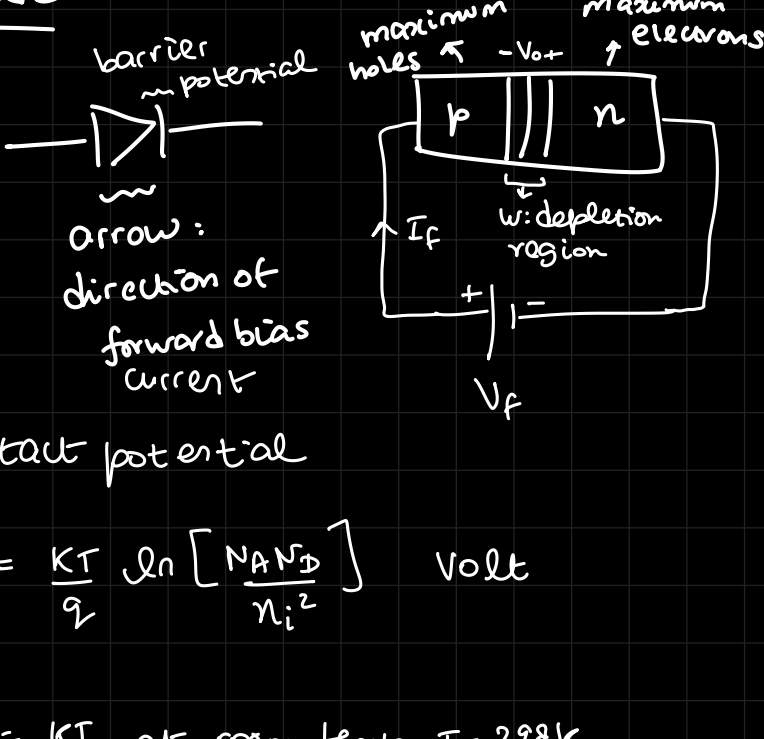 barrier
potential
arrow:
direction of
forward bias
current
maximum
holes
- V₀ +
maximum
elecrons
p
n
w: depletion
region
I_f
+ -
V_f
tact potential
= KT/q ln [N_A N_D / n_i²] Volt